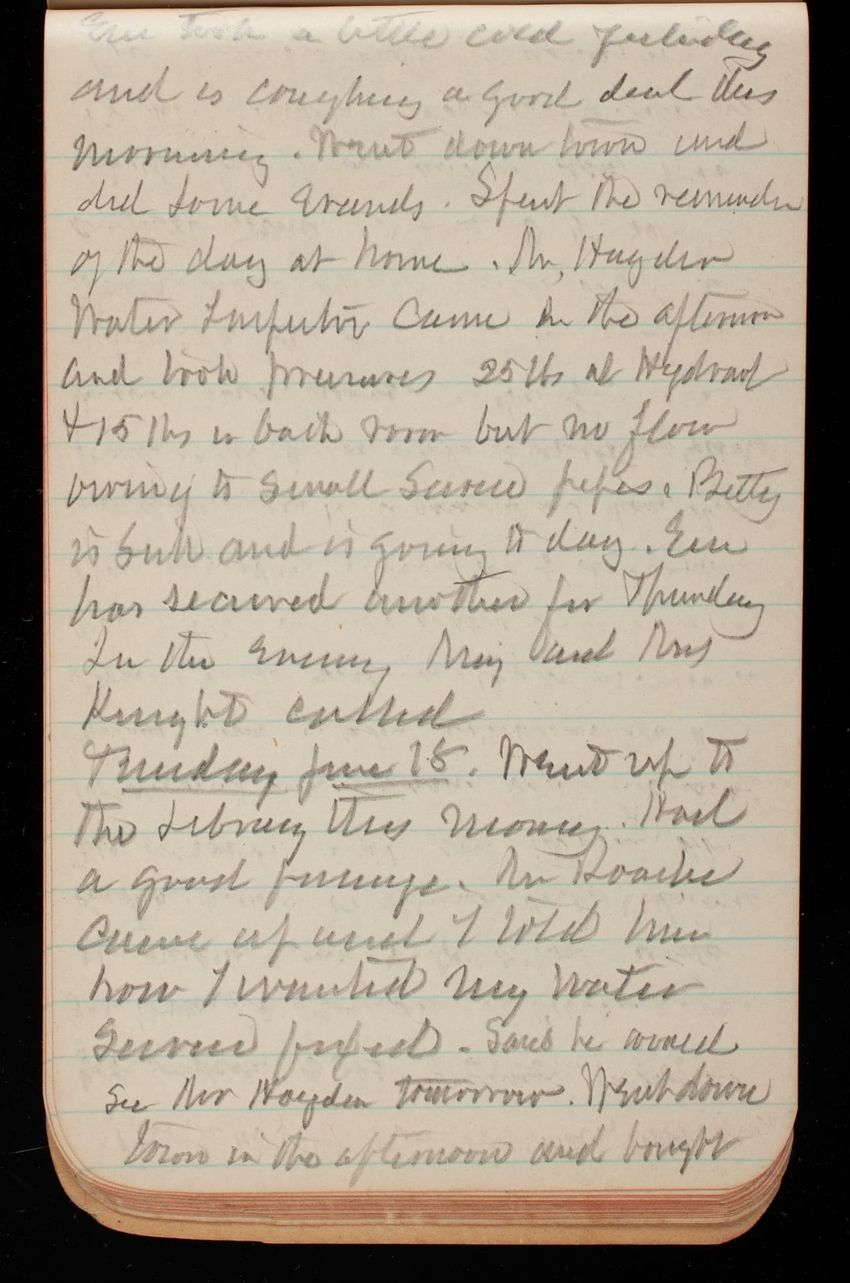 Em took a little cold yesterday
and is coughing a good deal this
morning. Went down town and
did some Erands. Spent the remainder
of the day at home. Mr. Hayden
Water Inspector came in the afternoon
and took pressures 25 lbs at Hydrant
& 15 lbs in bath room but no flow
owing to small Service pipes. Betty
is sick and is going to day. Em
has secured another for Thursday
In the Evening May and Mrs
Knight called
Tuesday June 15. Went up to
the Library this morning. Had
a good. Mr
came up and I told him
how I wanted my water
Service fixed. Said he would
see Mr Hayden tomorrow. Went down
town in the afternoon and bought